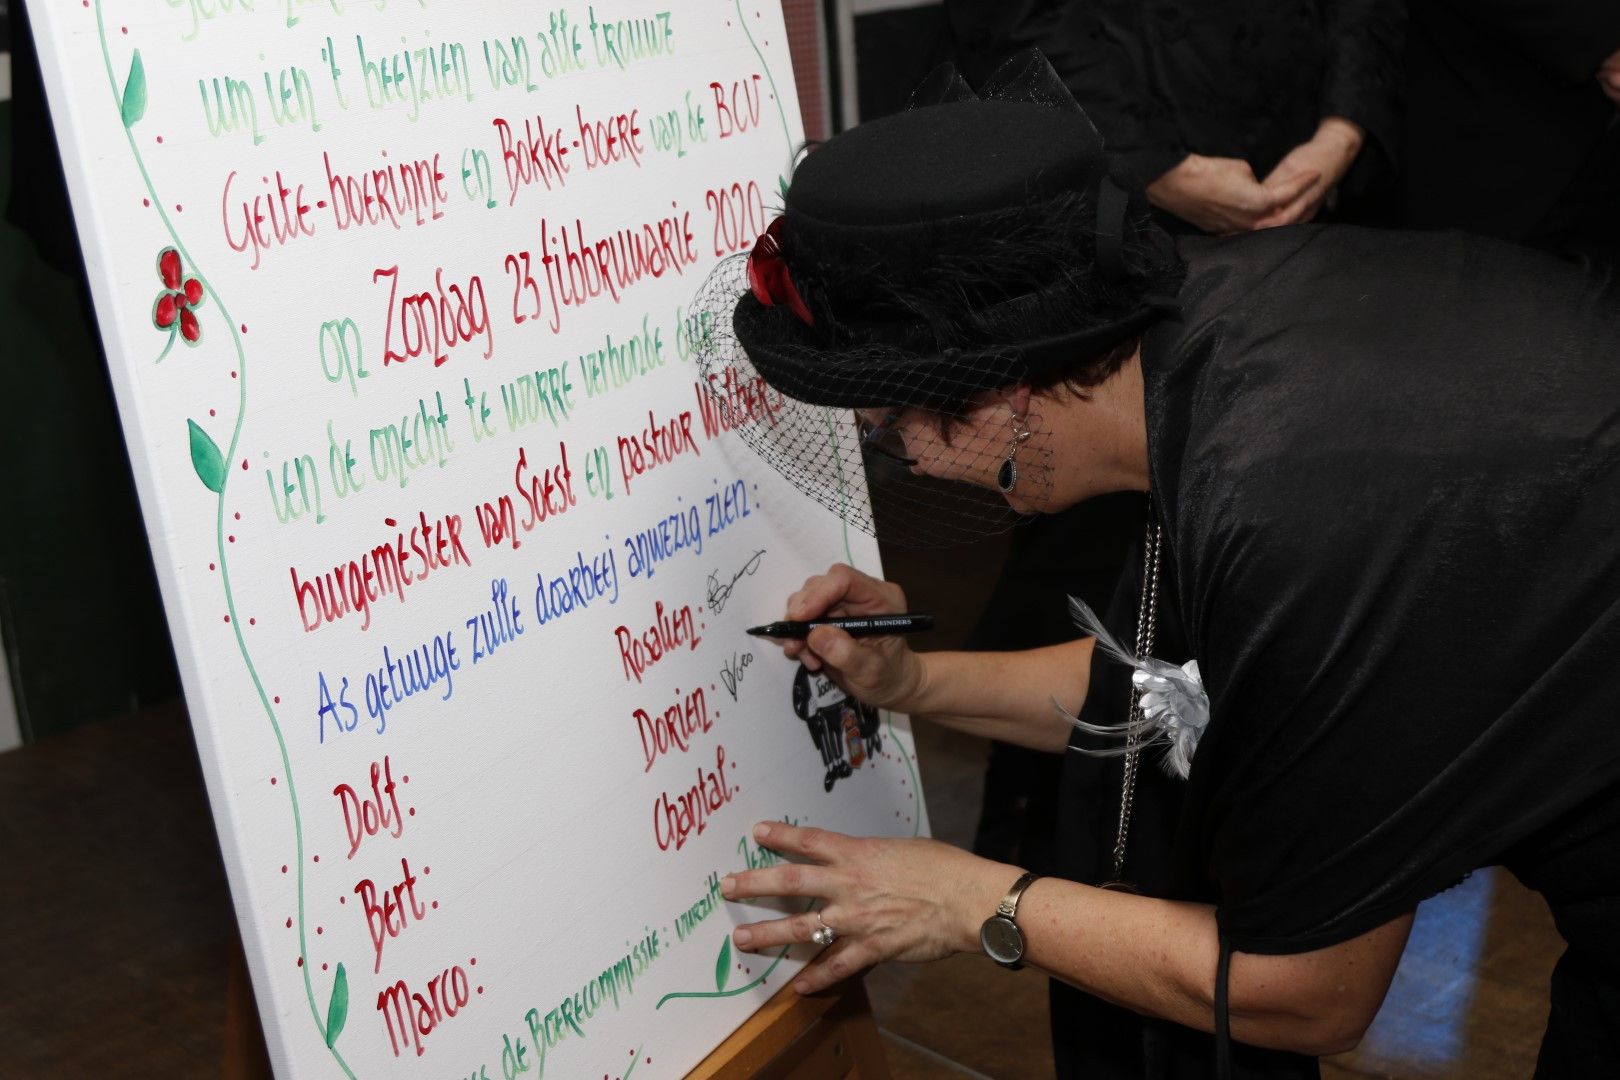 um ien 't beejzien van alle trouwe
Geite-boerinne en Bokke-boere van de BCV
op Zondag 23 fibbruwarie 2020
ien de onecht te worre verbonde dur
burgemèster van Soest en pastoor Wolbers
As getuuge zulle doarbeej anwezig zien:
Rosalien:
Dorien:
Chantal:
Dolf:
Bert:
Marco:
de Boerecommissie: vurzitt
PERMANENT MARKER | REINDERS